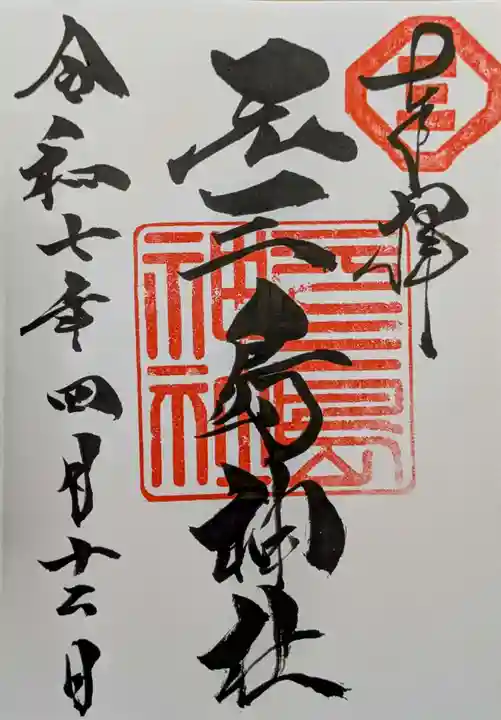 奉拝
元三島神社
三島神社
令和七年四月十二日